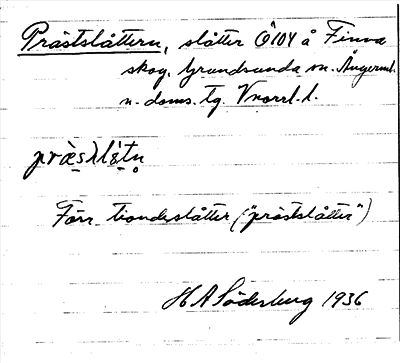 Prästslåttern, slåtter Ö104 å Finna
skog, Grundsunda sn. Ångerml.
n. doms. tg. Vnorrl. l.
Förr tiondeslåtter ("prästslåtter")
H A Söderberg 1936